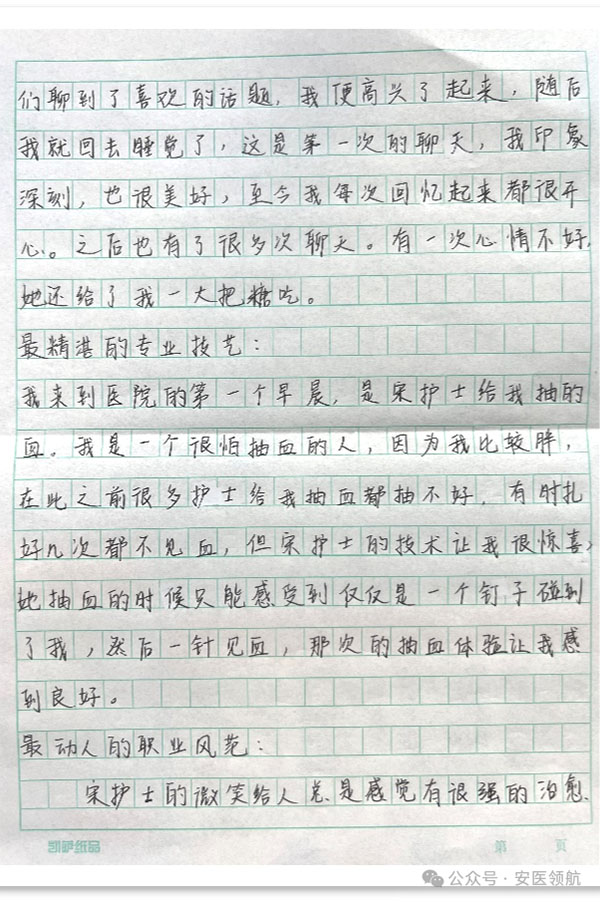 们聊到了喜欢的话题，我便高兴了起来，随后
我就回去睡觉了，这是第一次的聊天，我印象
深刻，也很美好，至今我每次回忆起来都很开
心。之后也有了很多次聊天。有一次心情不好，
她还给了我一大把糖吃。
最精湛的专业技艺：
我来到医院的第一个早晨，是宋护士给我抽的
血。我是一个很怕抽血的人，因为我比较胖，
在此之前很多护士给我抽血都抽不好，有时扎
好几次都不见血，但宋护士的技术让我很惊喜，
她抽血的时候只能感受到仅仅是一个钉子碰到
了我，然后一针见血，那次的抽血体验让我感
到良好。
最动人的职业风范：
宋护士的微笑给人总是感觉有很强的治愈、
凯萨纸品 第 页
公众号·安医领航